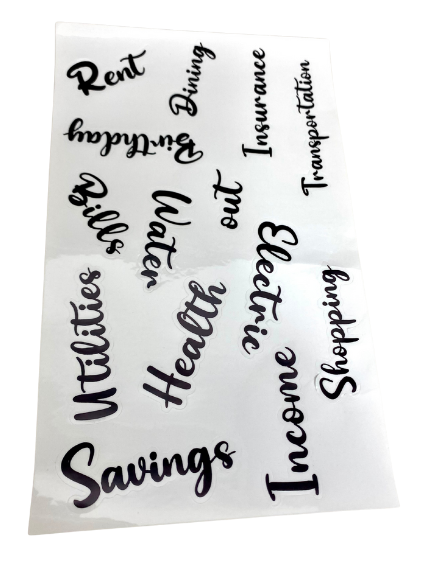 Rent
Dining
Insurance
Transportation
Birthday
Bills
Water
out
Electric
Utilities
Health
Shopping
Income
Savings